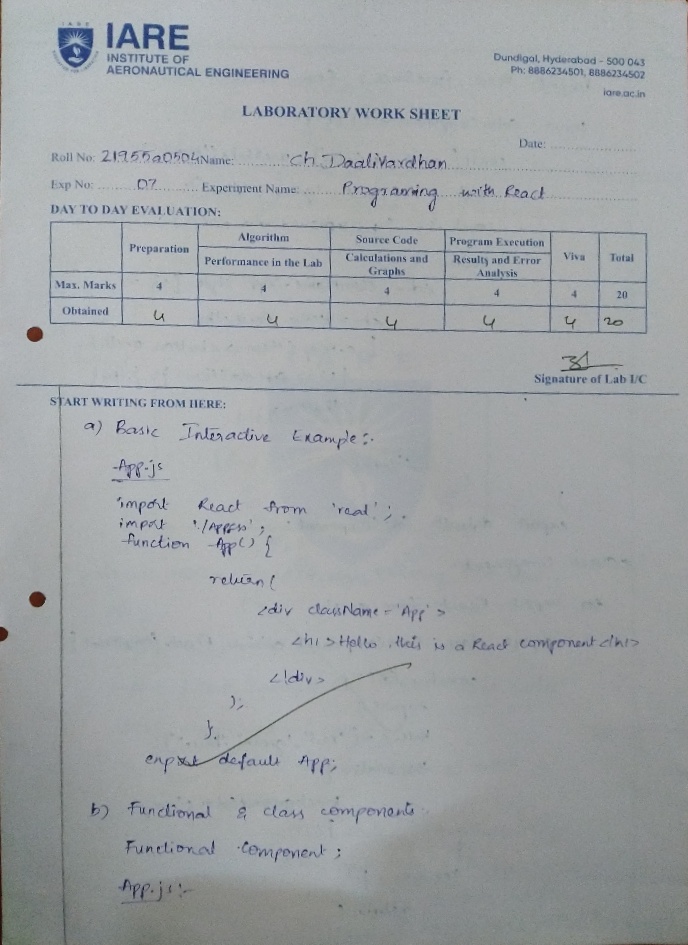 IARE
INSTITUTE OF
AERONAUTICAL ENGINEERING
Dundigal, Hyderabad - 500 043
Ph: 8886234501, 8886234502
iare.ac.in
LABORATORY WORK SHEET
Date:
Roll No: 21955a0504 Name: Ch. DaaliVardhan
Exp No: 07 Experiment Name: Programing with React
DAY TO DAY EVALUATION:
Preparation Algorithm Source Code Program Execution Viva Total
Performance in the Lab Calculations and Graphs Results and Error Analysis
Max. Marks 4 4 4 4 4 20
Obtained 4 4 4 4 4 20
Signature of Lab I/C
START WRITING FROM HERE:
a) Basic Interactive Example:-
App.js
import React from 'reat';
import './App.css';
function App() {
return(
<div className='App'>
<h1>Hello, this is a React component</h1>
</div>
);
}
export default App;
b) Functional & class components
Functional Component;
App.js:-